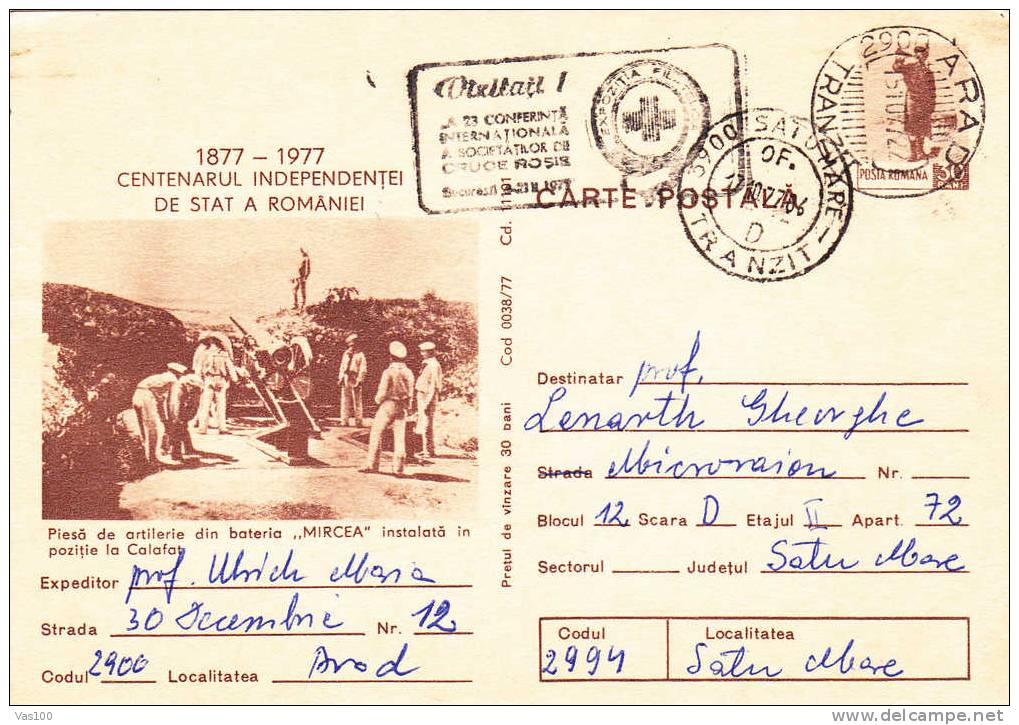 1877 – 1977
CENTENARUL INDEPENDENȚEI
DE STAT A ROMÂNIEI
Vizitați !
A 23 CONFERINȚĂ
INTERNAȚIONALĂ
A SOCIETĂȚILOR DE
CRUCE ROȘIE
București 1977
EXPOZIȚIA
2900 ARAD
TRANZ
POSTA ROMANA
CARTE POȘTALĂ
3900 SATU MARE
OF.
D
TRANZIT
Piesă de artilerie din bateria ,,MIRCEA" instalată în
poziție la Calafat
Expeditor prof. Ulrich Maria
Strada 30 Decembrie Nr. 12
Codul 2900 Localitatea Arad
Prețul de vînzare 30 bani Cod 0038/77 Cd. 11101
Destinatar prof.
Lenarth Gheorghe
Strada Microraion Nr.
Blocul 12 Scara D Etajul II Apart. 72
Sectorul Județul Satu Mare
Codul Localitatea
2994 Satu Mare
Vas100
www.delcampe.net